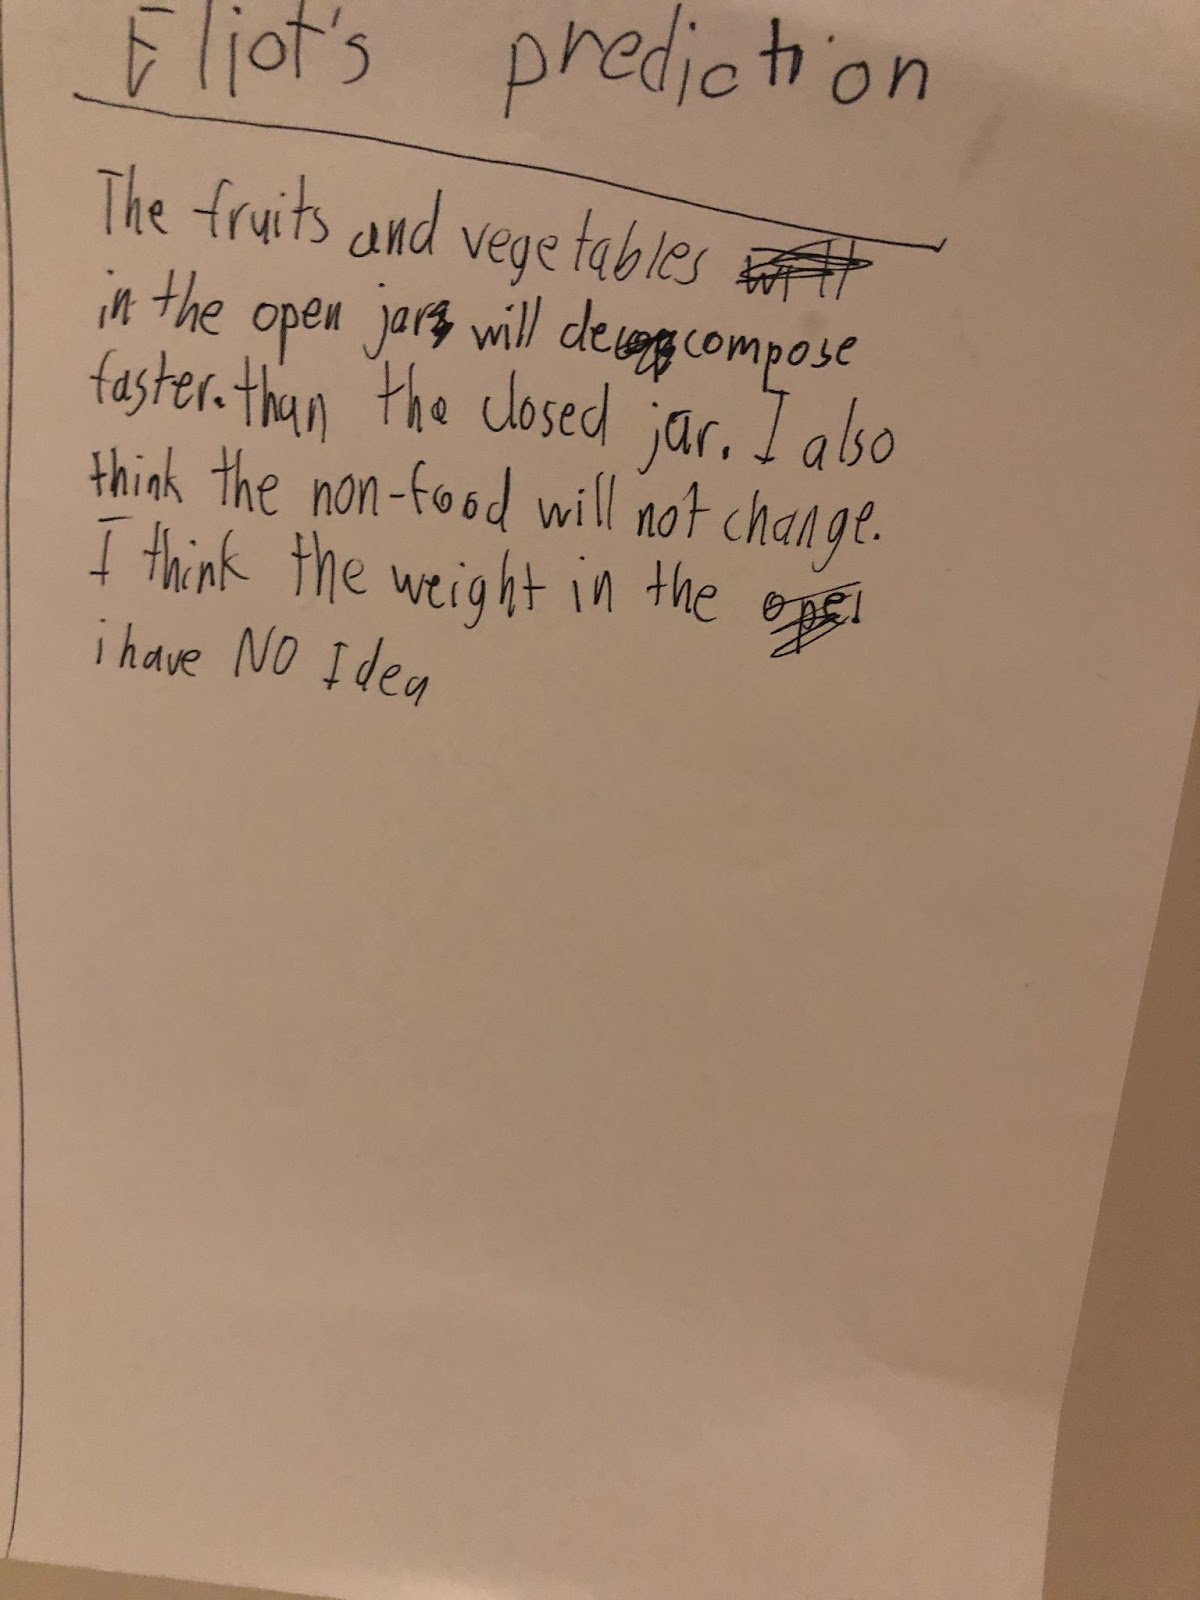 Eliot's prediction
The fruits and vegetables will
in the open jar will decompose
faster. than the closed jar. I also
think the non-food will not change.
I think the weight in the ope
i have NO Idea